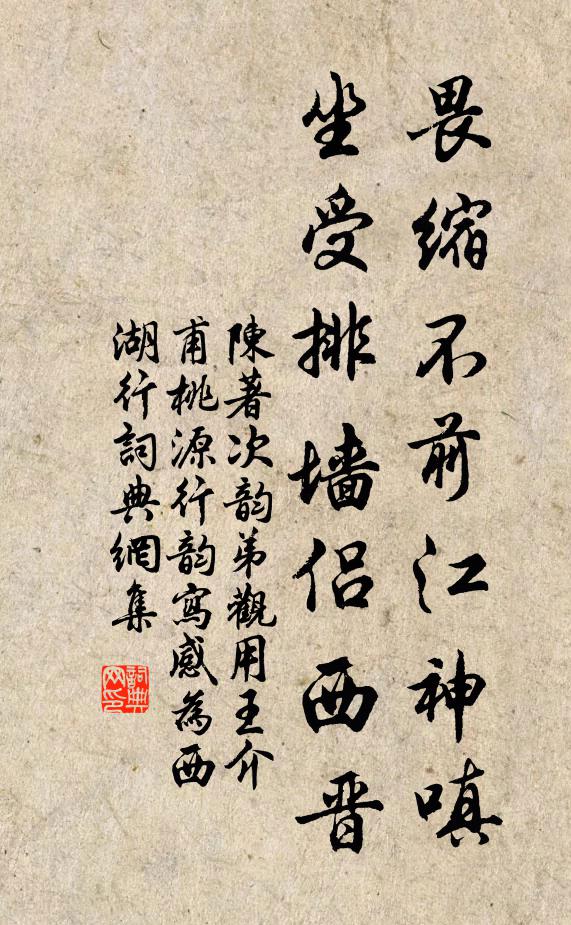 畏缩不前江神嗔
坐受排墙侣西晋
陳著次韵弟觀用王介
甫桃源行韵寫感為西
湖行詞典網集
詞典网印